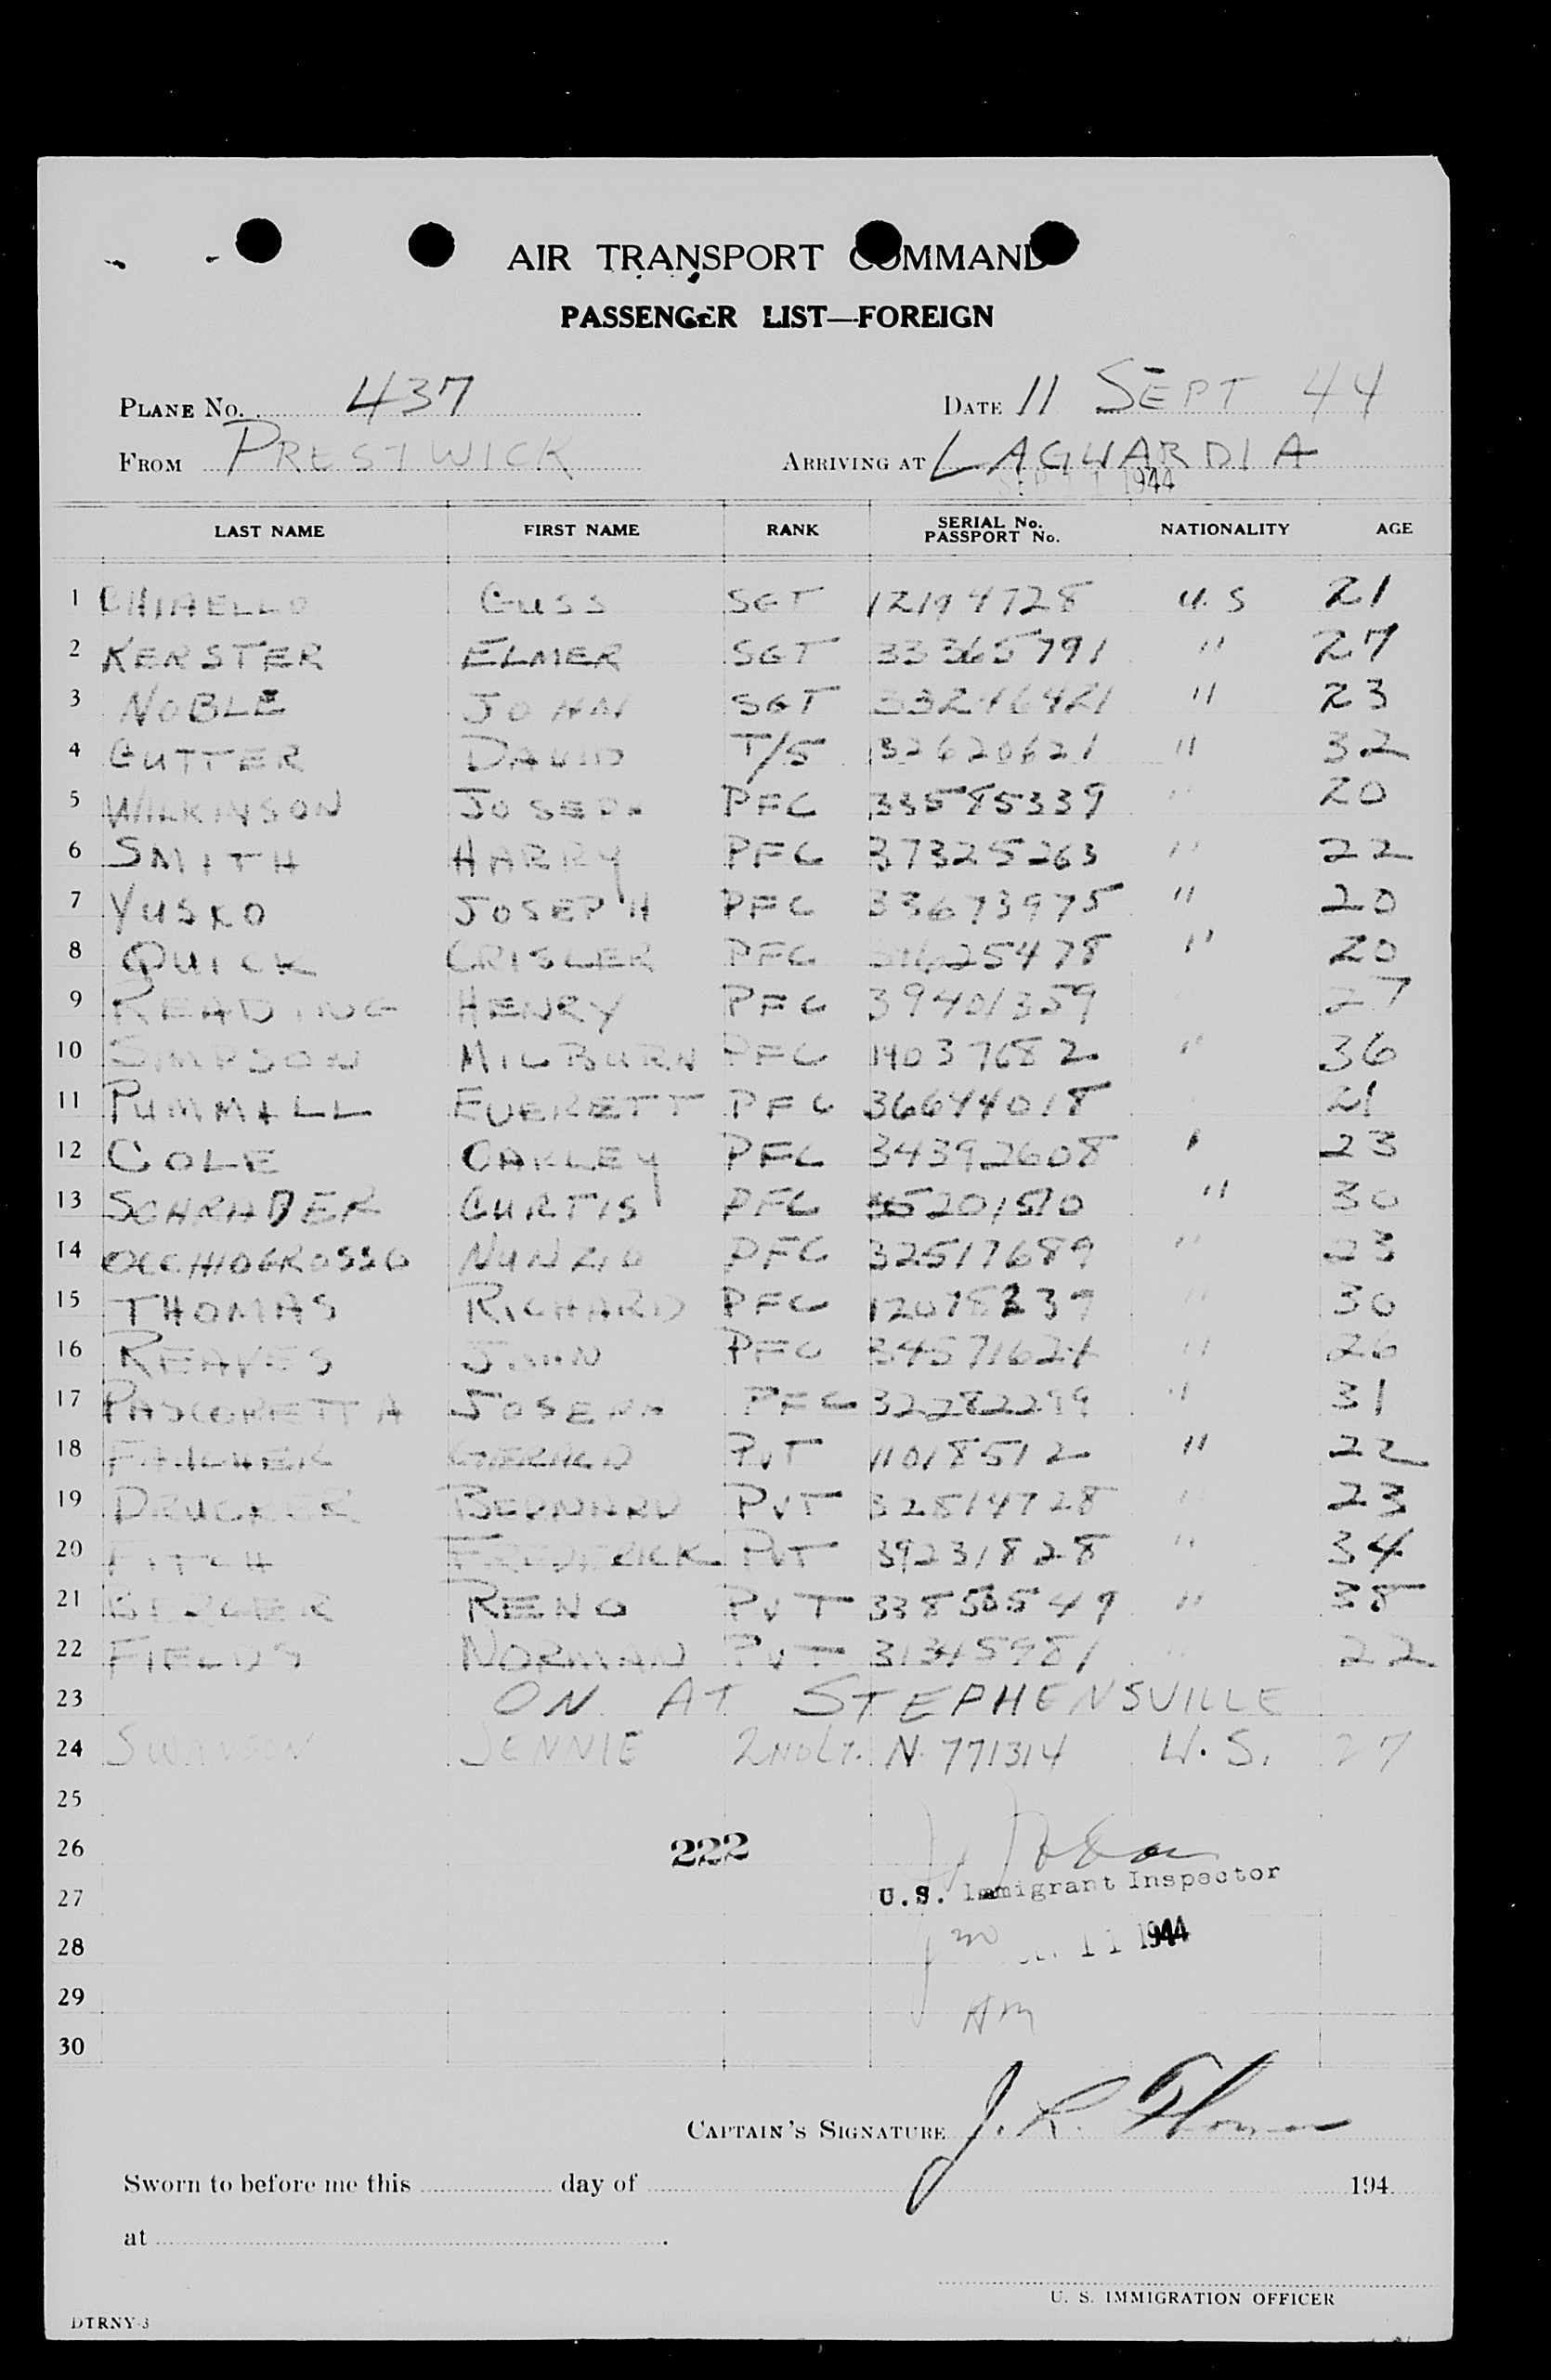 AIR TRANSPORT COMMAND
PASSENGER LIST—FOREIGN
PLANE No. 437 DATE 11 SEPT 44
FROM PRESTWICK ARRIVING AT LAGUARDIA
SEP 11 1944
LAST NAME FIRST NAME RANK SERIAL No. PASSPORT No. NATIONALITY AGE
1 CHIAELLO GUSS SGT 12194728 U.S 21
2 KERSTER ELMER SGT 33365791 " 27
3 NOBLE JOHN SGT 33246421 " 23
4 GUTTER DAVID T/5 32620621 " 32
5 WILKINSON JOSEPH PFC 33585339 " 20
6 SMITH HARRY PFC 37325263 " 22
7 YUSKO JOSEPH PFC 33673975 " 20
8 QUICK CRISLER PFC " 20
9 READING HENRY PFC 39401359 27
10 SIMPSON MILBURN PFC 14037682 " 36
11 PUMMILL EVERETT PFC 36644018 21
12 COLE OAKLEY PFC 34392608 " 23
13 SCHRABER CURTIS PFC 35201510 " 30
14 OCCHIOGROSSO NUNZIO PFC 32517689 " 23
15 THOMAS RICHARD PFC 12078239 " 30
16 REAVES JOHN PFC 34571624 " 26
17 JOSEPH PFC 32282299 " 31
18 GERALD PVT 11018512 " 22
19 DRUCKER BERNARD PVT 32814728 " 23
20 FITCH FREDERICK PVT 39231828 " 34
21 BERGER RENO PVT 33850549 " 38
22 FIELDS NORMAN PVT 31315981 " 22
23 ON AT STEPHENSVILLE
24 SWANSON JENNIE 2ND LT. N 771314 U.S. 27
25
26 222
27 U.S. Immigrant Inspector
28 11 1944
29 AM
30
CAPTAIN'S SIGNATURE J. R.
Sworn to before me this day of 194
at .
U. S. IMMIGRATION OFFICER
DTRNY-3